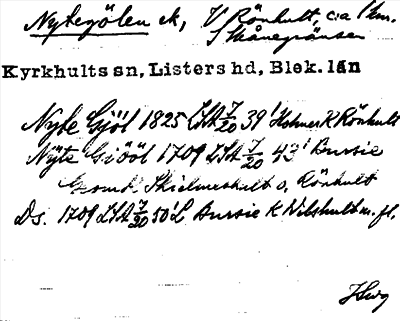 Nytegölen ek, V Rönhult, c:a 1 km.
S Skånegränsen
Kyrkhults sn, Listers hd, Blek. län
Nyte Gjöl 1825 LSA 7/20 39' Holmer K Rönhult
Nÿte Giööl 1709 LSA 7/20 43' Bursie
Skielmershult o. Rönhult
Ds. 1709 LSA 7/20 50' L Bursie K Vilshult m. fl.